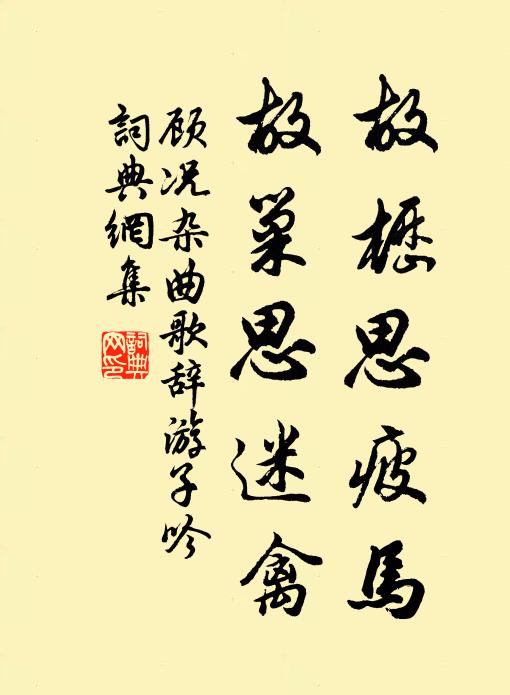 故櫪思疲馬
故巢思迷禽
顾况杂曲歌辞游子吟
詞典網集
詞典網印